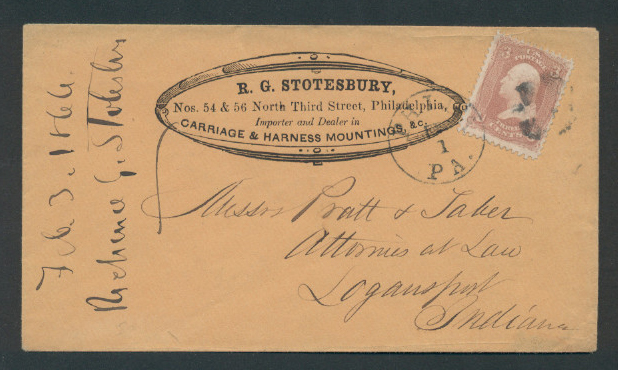 Feb. 3. 1866.
Richard G. Stotesbury
R. G. STOTESBURY,
Nos. 54 & 56 North Third Street, Philadelphia,
Importer and Dealer in
CARRIAGE & HARNESS MOUNTINGS, &c.
1
PA.
3
U.S. POSTAGE
CENTS
Messrs Pratt & Taber
Attornies at Law
Logansport
Indiana